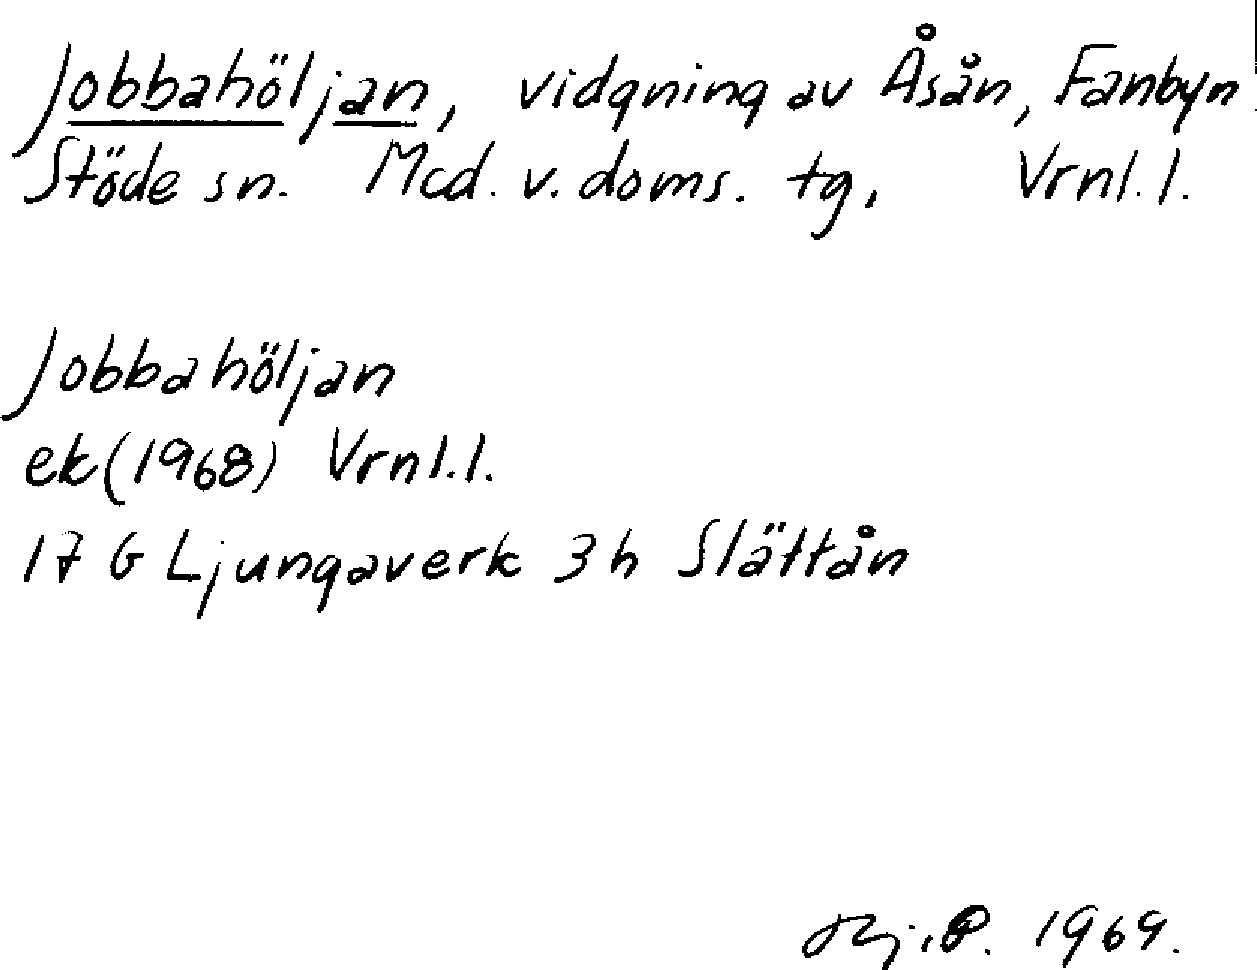 Jobbahöljan, vidgning av Åsån, Fanbyn
Stöde sn. Mcd. v. doms. tg, Vrnl. l.
Jobbahöljan
ek (1968) Vrnl. l.
17 G Ljungaverk 3 h Slättån
1969.